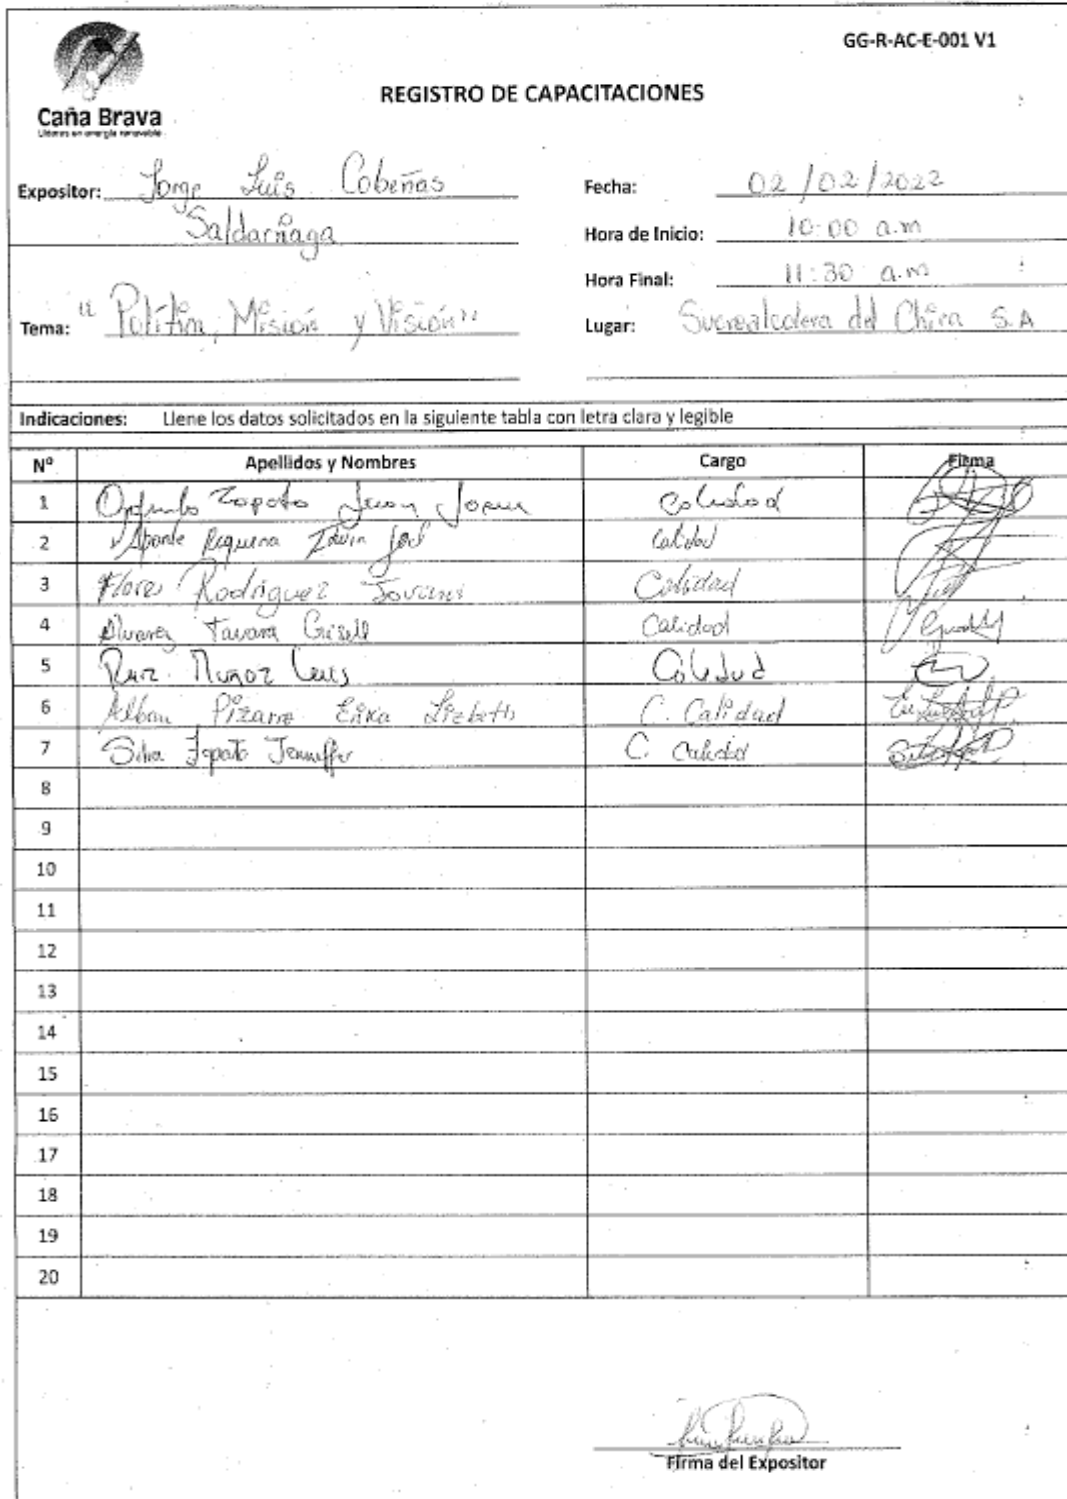 GG-R-AC-E-001 V1
Caña Brava
Líderes en energía renovable
REGISTRO DE CAPACITACIONES
Expositor: Jorge Luis Cobeñas
Saldarriaga
Fecha: 02/02/2022
Hora de Inicio: 10:00 a.m
Hora Final: 11:30 a.m
Tema: "Política, Misión y Visión"
Lugar: Sucroalcolera del Chira S.A
Indicaciones: Llene los datos solicitados en la siguiente tabla con letra clara y legible
Nº Apellidos y Nombres Cargo Firma
1 Zapata Juan Calidad
2 Aponte Requena Edwin Joel Calidad
3 Flores Rodriguez Jovani Calidad
4 Alvarez Tavara Gisell Calidad
5 Ruiz Muñoz Luis Calidad
6 Alban Pizarro Erika Lizbeth C. Calidad
7 Silva Zapata Jenniffer C. Calidad
8
9
10
11
12
13
14
15
16
17
18
19
20
Firma del Expositor